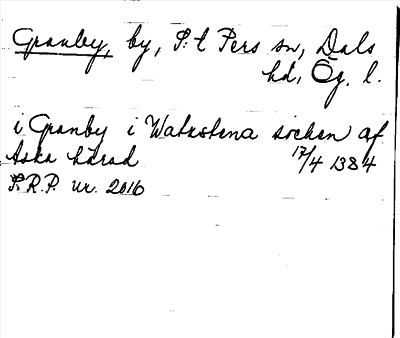 Granby, by, S:t Pers sn, Dals
hd, Ög. l.
i Granby i Watzstena sochen af
Aska härad 12/4 1384
S.R.P. nr. 2016